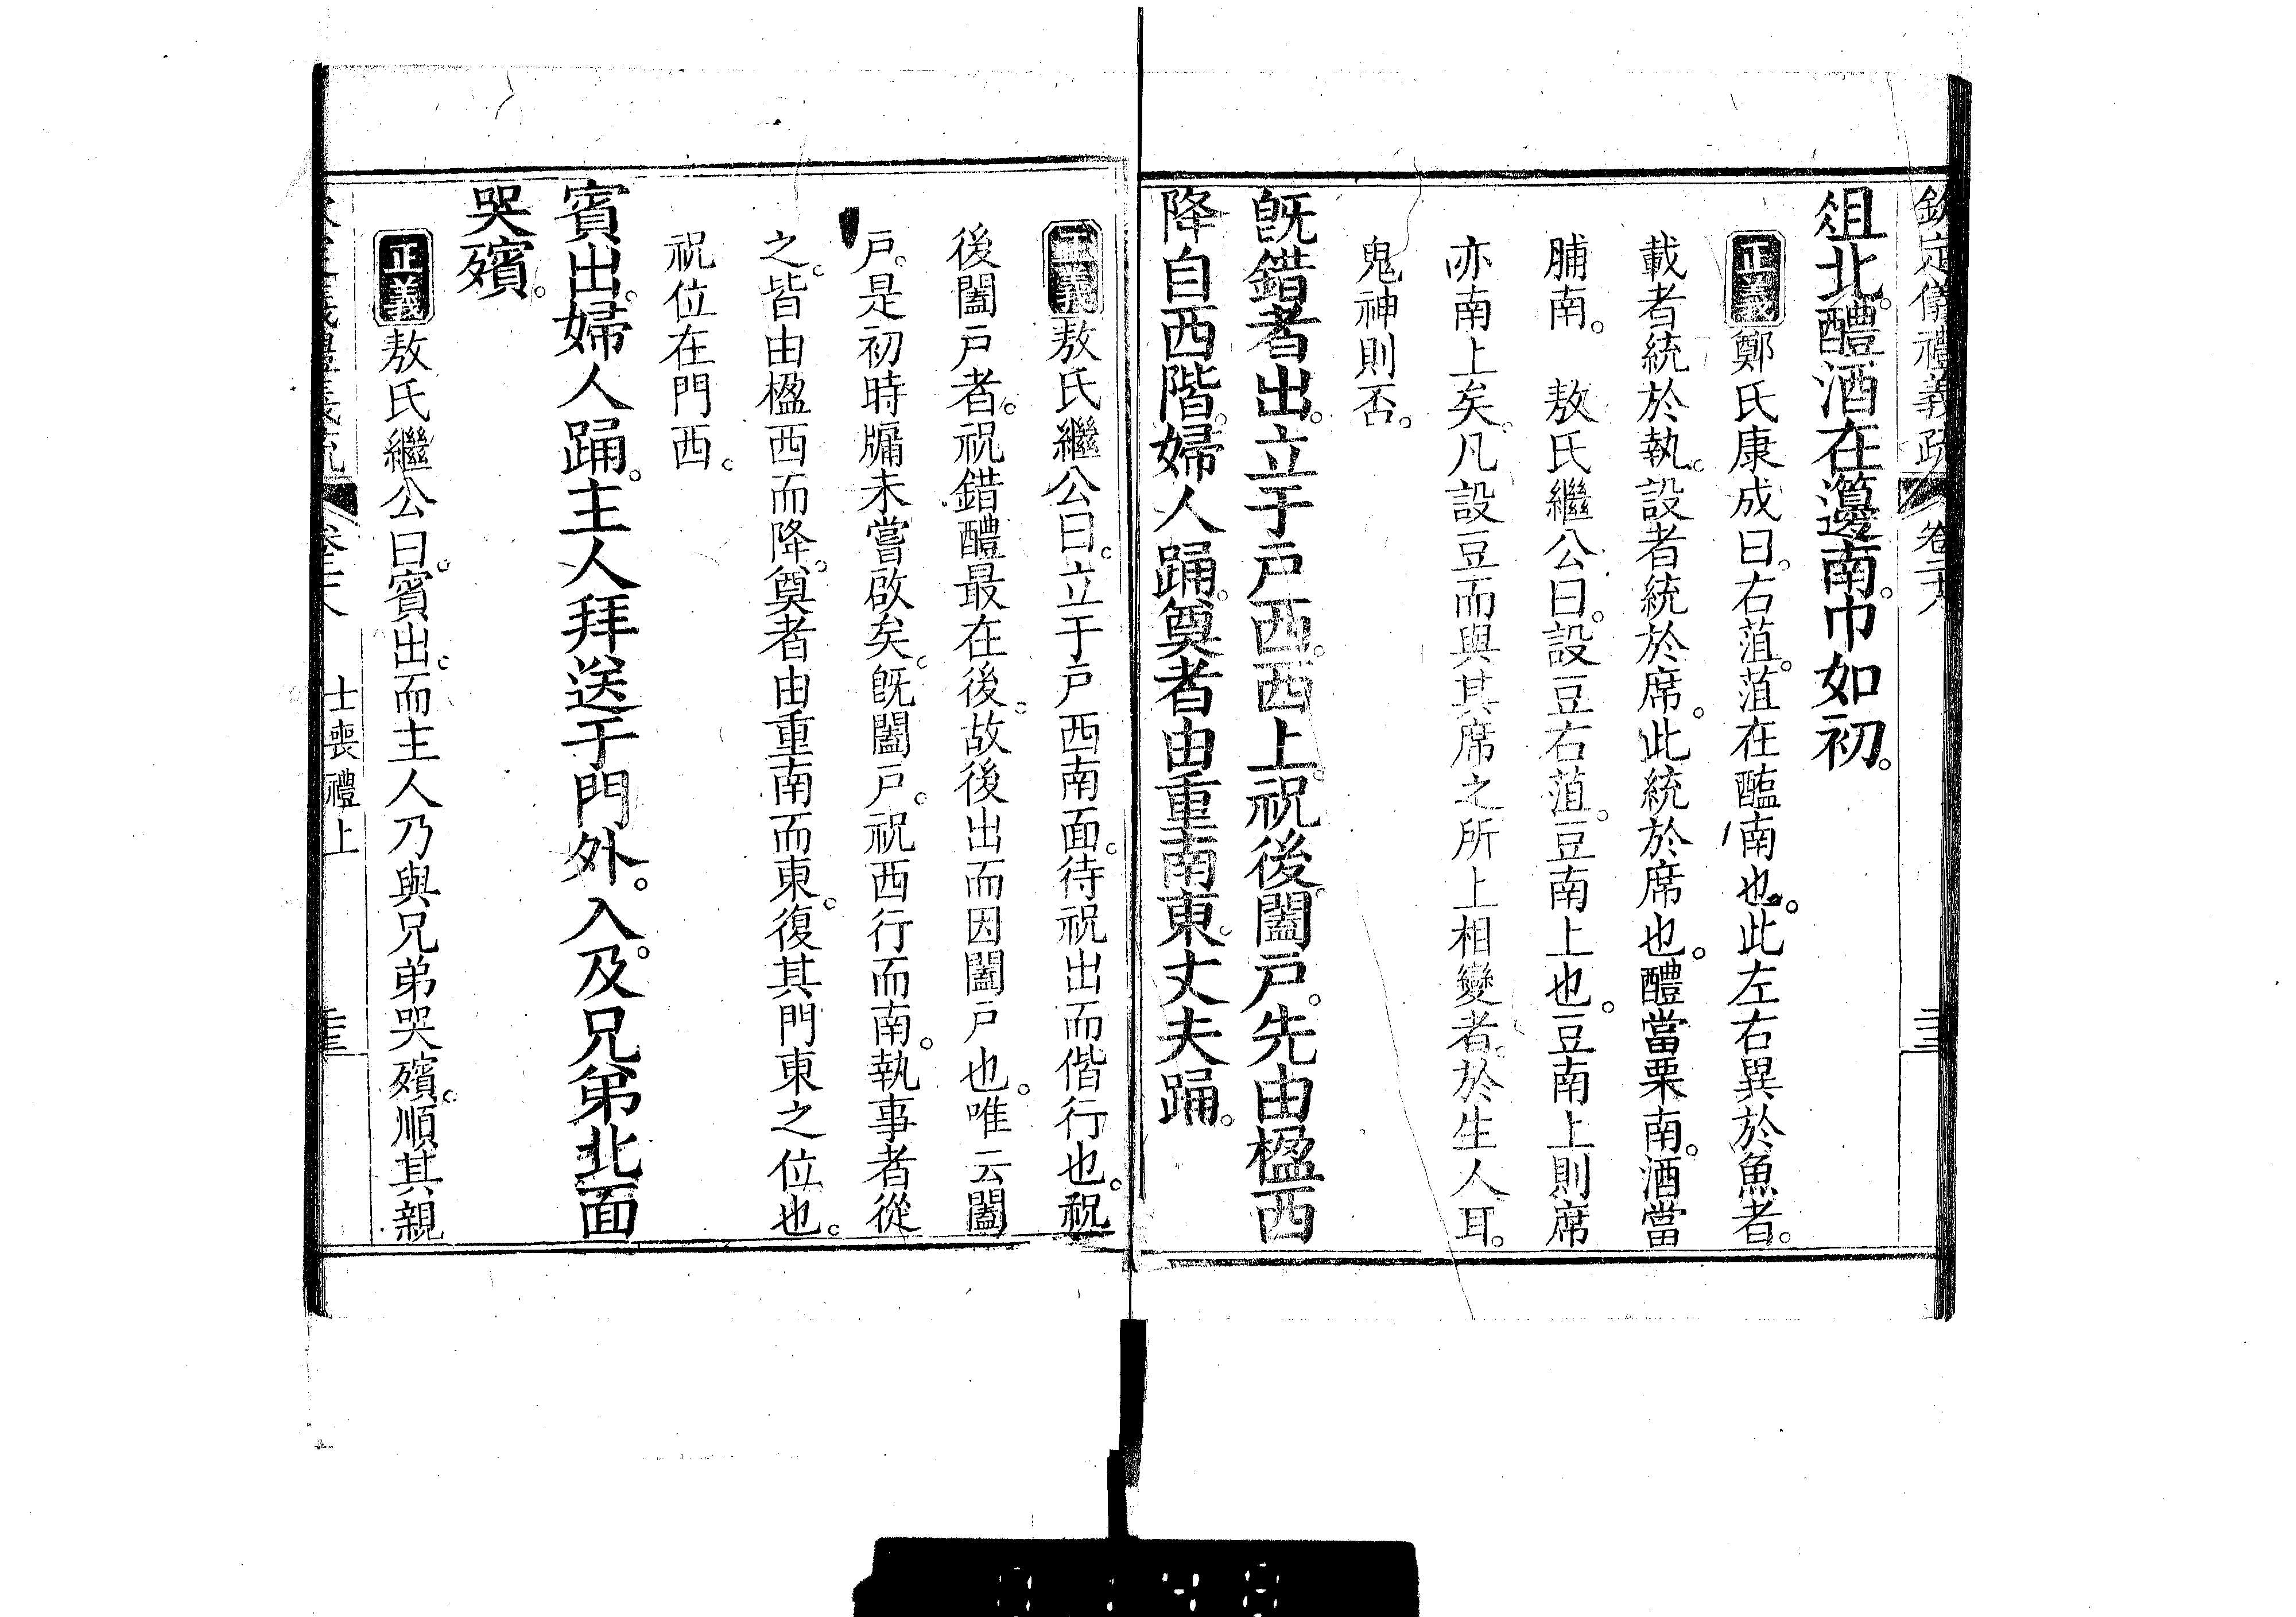 欽定儀禮義疏 卷二六
俎北。醴酒在籩南。巾如初。
正義鄭氏康成曰。右菹。菹在醢南也。此左右異於魚者。
載者統於執。設者統於席。此統於席也。醴當栗南。酒當
脯南。 敖氏繼公曰。設豆右菹。豆南上也。豆南上則席
亦南上矣。凡設豆而與其席之所上相變者。於生人耳。
鬼神則否。
旣錯者出。立于戶西。西上。祝後。闔戶。先由楹西
降自西階。婦人踊。奠者由重南東。丈夫踊。
正義敖氏繼公曰。立于戶西南面。待祝出而偕行也。祝
後闔戶者。祝錯醴最在後。故後出而因闔戶也。唯云闔
戶。是初時牖未嘗啟矣。旣闔戶。祝西行而南。執事者從
之。皆由楹西而降。奠者由重南而東。復其門東之位也。
祝位在門西。
賓出。婦人踊。主人拜送于門外。入。及兄弟北面
哭殯。
正義敖氏繼公曰。賓出。而主人乃與兄弟哭殯。順其親
士喪禮上